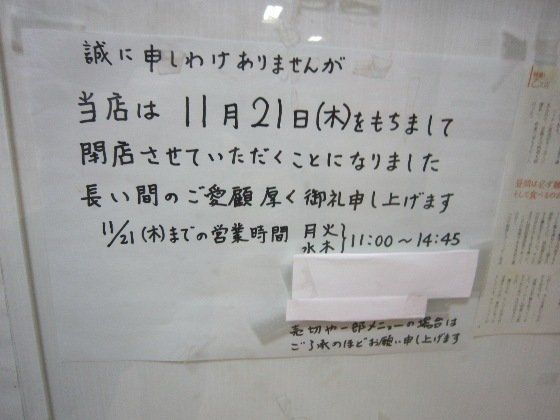 誠に申しわけありませんが
当店は 11月21日(木)をもちまして
閉店させていただくことになりました
長い間のご愛顧厚く御礼申し上げます
11/21(木)までの営業時間 月火水木}11:00〜14:45
売切や一部メニューの場合は
ご了承のほどお願い申し上げます